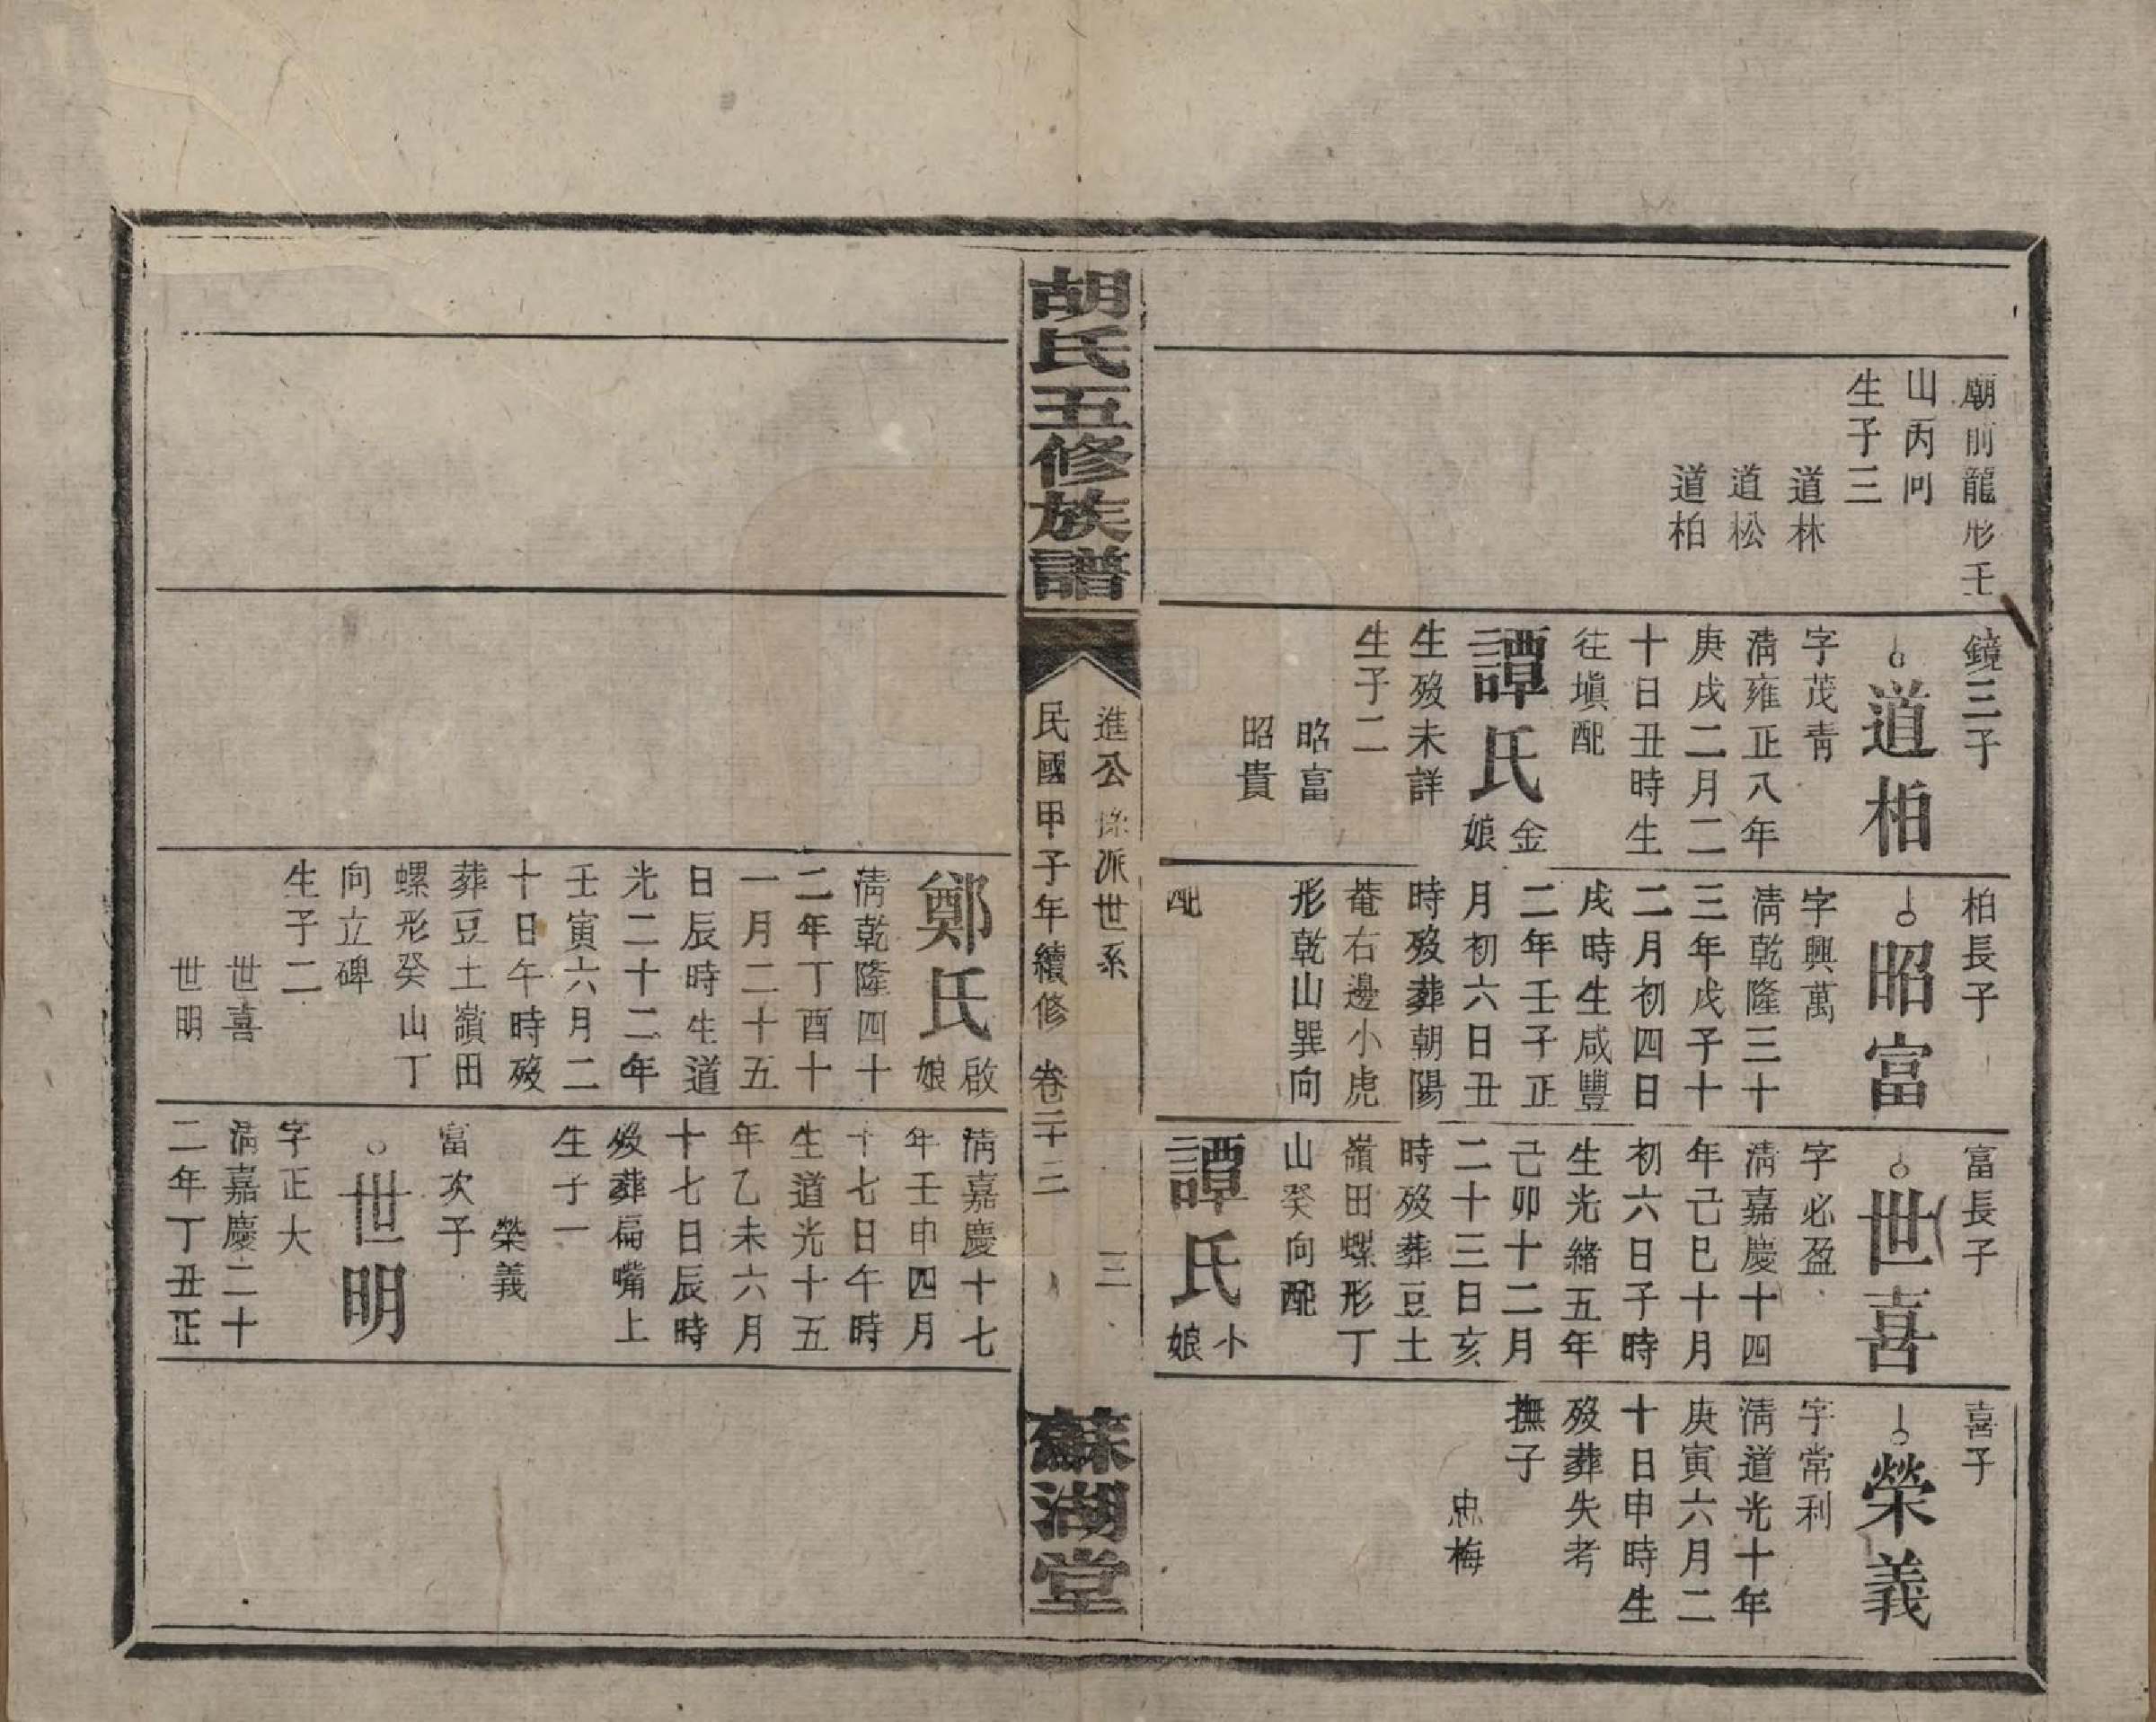 廟前龍形壬
山丙向
生子三
道林
道松
道柏
鏡三子
道柏
字茂靑
淸雍正八年
庚戌二月二
十日丑時生
往塡配
譚氏金娘
生歿未詳
生子二
昭富
昭貴
柏長子
昭富
字興萬
淸乾隆三十
三年戊子十
二月初四日
戌時生咸豐
二年壬子正
月初六日丑
時歿葬朝陽
菴右邊小虎
形乾山巽向
配
富長子
世喜
字必盈
淸嘉慶十四
年己巳十月
初六日子時
生光緒五年
己卯十二月
二十三日亥
時歿葬豆土
嶺田螺形丁
山癸向配
譚氏小娘
喜子
榮義
字常利
淸道光十年
庚寅六月二
十日申時生
歿葬失考
撫子
忠梅
胡氏五修族譜
進公 派世系
三
民國甲子年續修 卷二十三
蘇湖堂
鄭氏啟娘
淸乾隆四十
二年丁酉十
一月二十五
日辰時生道
光二十二年
壬寅六月二
十日午時歿
葬豆土嶺田
螺形癸山丁
向立碑
生子二
世喜
世明
淸嘉慶十七
年壬申四月
十七日午時
生道光十五
年乙未六月
十七日辰時
歿葬扁嘴上
生子一
榮義
富次子
世明
字正大
淸嘉慶二十
二年丁丑正